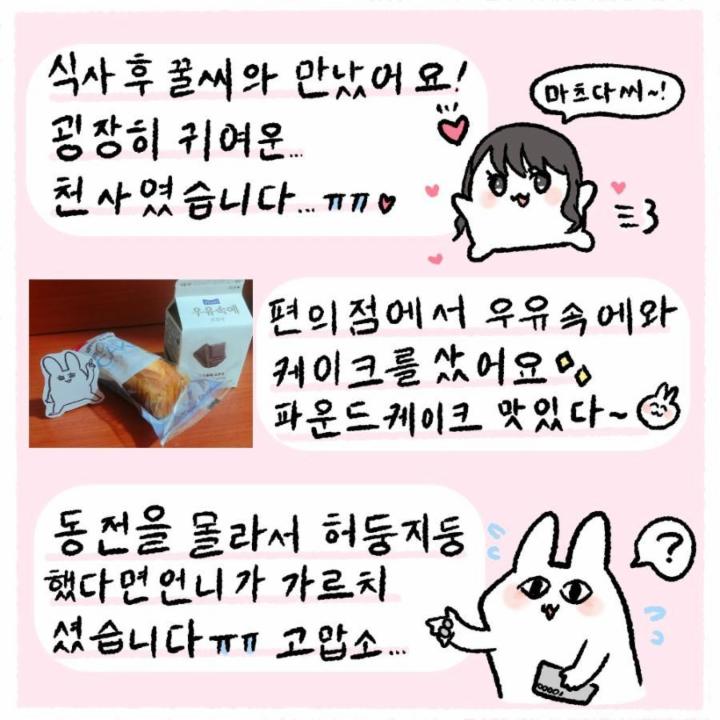 식사후 꿀씨와 만났어요!
굉장히 귀여운...
천사였습니다...ㅠㅠ
마츠다씨~!
우유속에
편의점에서 우유속에와
케이크를 샀어요
파운드케이크 맛있다~
동전을 몰라서 허둥지둥
했다면언니가 가르치
셨습니다ㅠㅠ 고맙소...
?